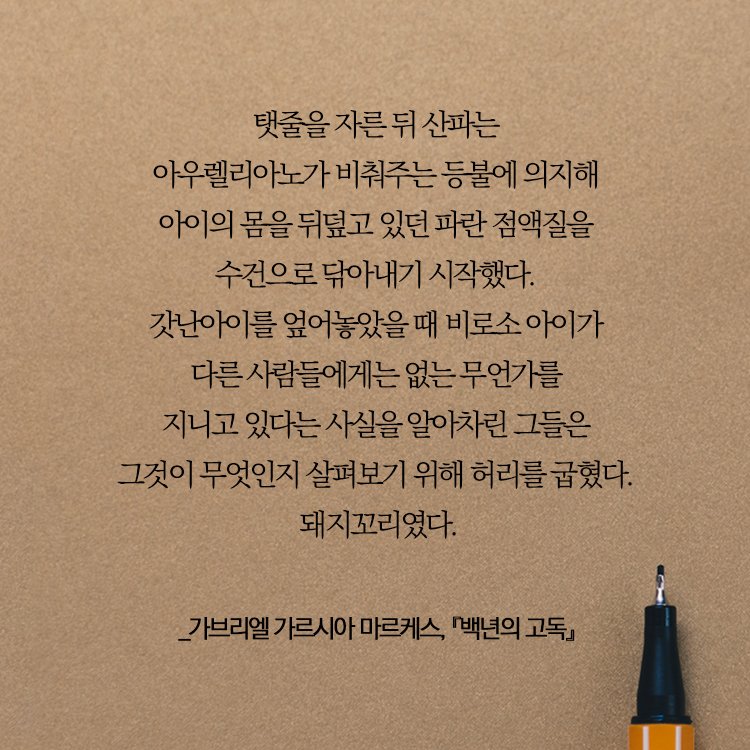 탯줄을 자른 뒤 산파는
아우렐리아노가 비춰주는 등불에 의지해
아이의 몸을 뒤덮고 있던 파란 점액질을
수건으로 닦아내기 시작했다.
갓난아이를 엎어놓았을 때 비로소 아이가
다른 사람들에게는 없는 무언가를
지니고 있다는 사실을 알아차린 그들은
그것이 무엇인지 살펴보기 위해 허리를 굽혔다.
돼지꼬리였다.
_가브리엘 가르시아 마르케스, 『백년의 고독』